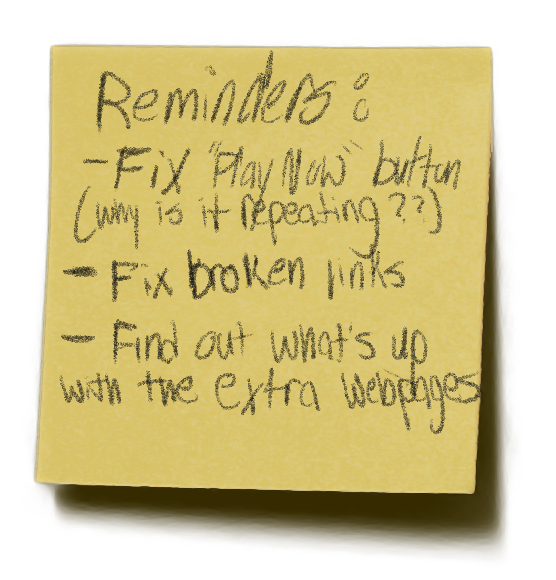 Reminders:
- Fix "Play Now" button
(why is it repeating??)
- Fix broken links
- Find out what's up
with the extra webpages